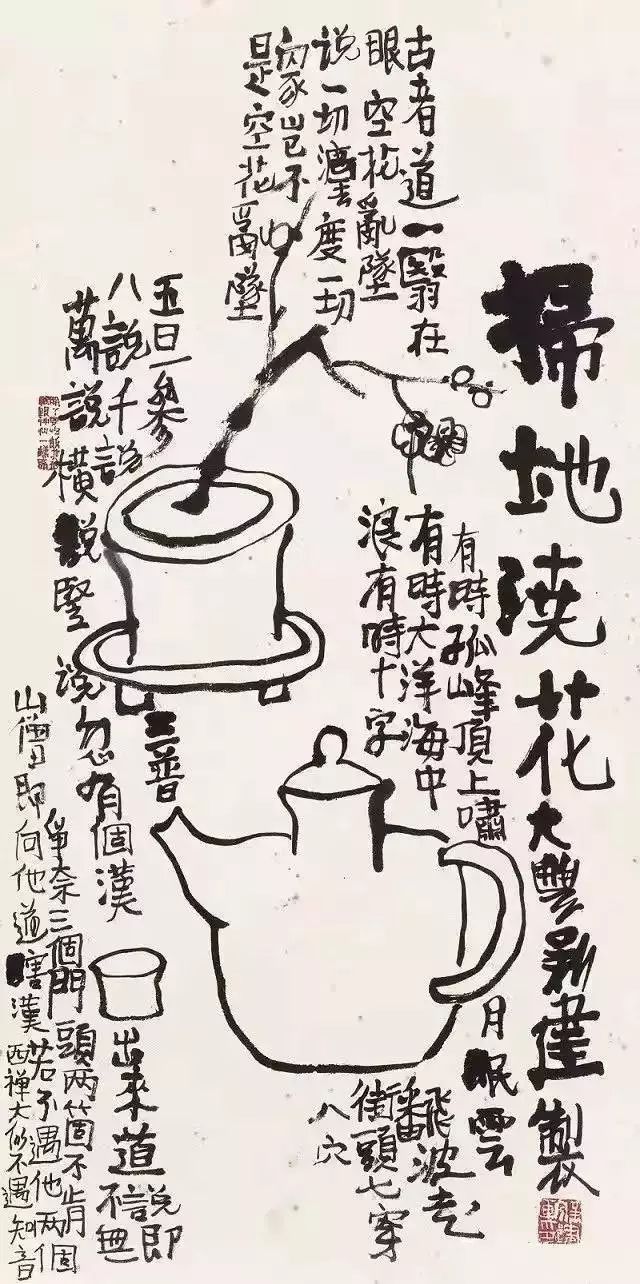 掃地澆花
大豐新建製
古者道一翳在
眼空花亂墜
说一切灋度一切
是空花亂墜
有時孤峰頂上嘯
月眠雲
有時大洋海中
飜波走
浪有時十字
街頭七穿
八穴
五日一參
八説千説
萬説横説豎说
三普
忽有個漢
出來道説即
不無
爭奈三個門頭两箇不肯
山僧即向他道瞎漢若不遇他两個
西禅大似不遇知音